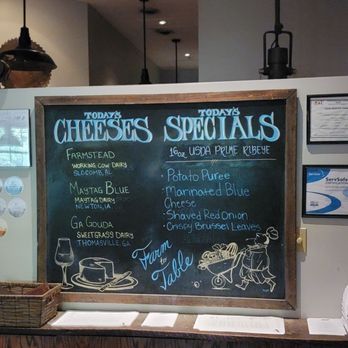 TODAY'S
CHEESES
FARMSTEAD
WORKING COW DAIRY
SLOCOMB, AL
MAYTAG BLUE
MAYTAG DAIRY
NEWTON, IA
GA GOUDA
SWEETGRASS DAIRY
THOMASVILLE GA
TODAY'S
SPECIALS
16oz USDA PRIME RIBEYE
• Potato Puree
• Marinated Blue
Cheese
• Shaved Red Onion
• Crispy Brussel Leaves
Farm
to
Table
ServSafe